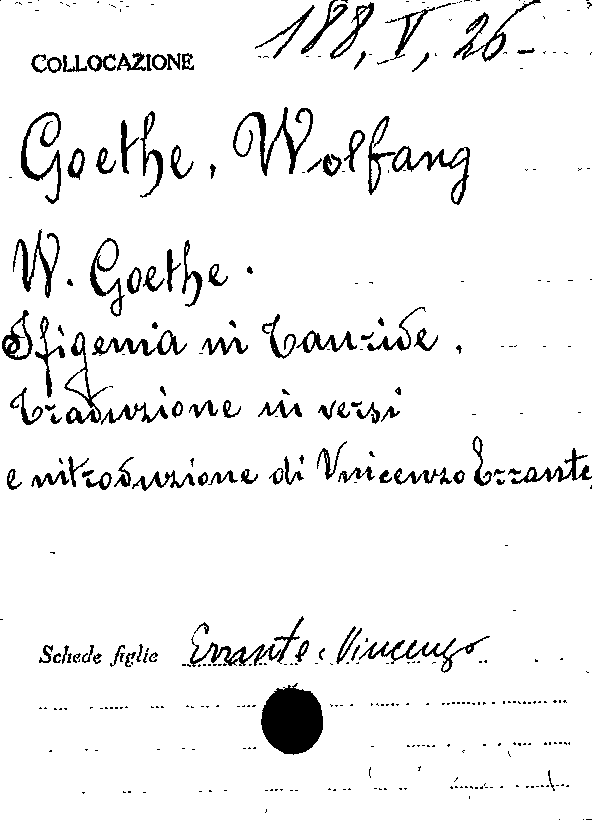 COLLOCAZIONE 188, V, 26-
Goethe, Wolfang
W. Goethe.
Ifigenia in Tauride.
Traduzione in versi
e introduzione di Vincenzo Errante,
Schede figlie Errante, Vincenzo